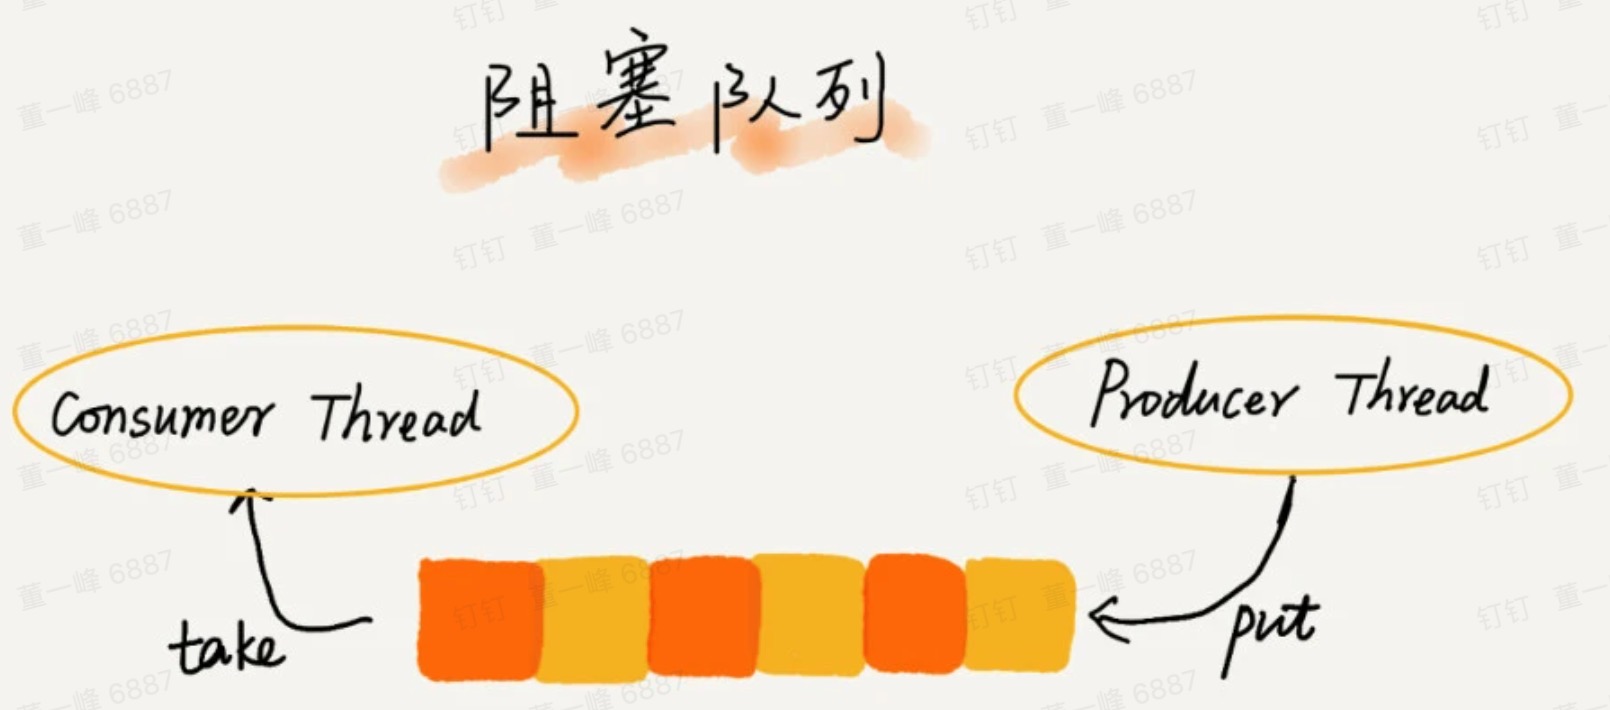 阻塞队列
Consumer Thread
Producer Thread
take
put
钉钉 董一峰 6887